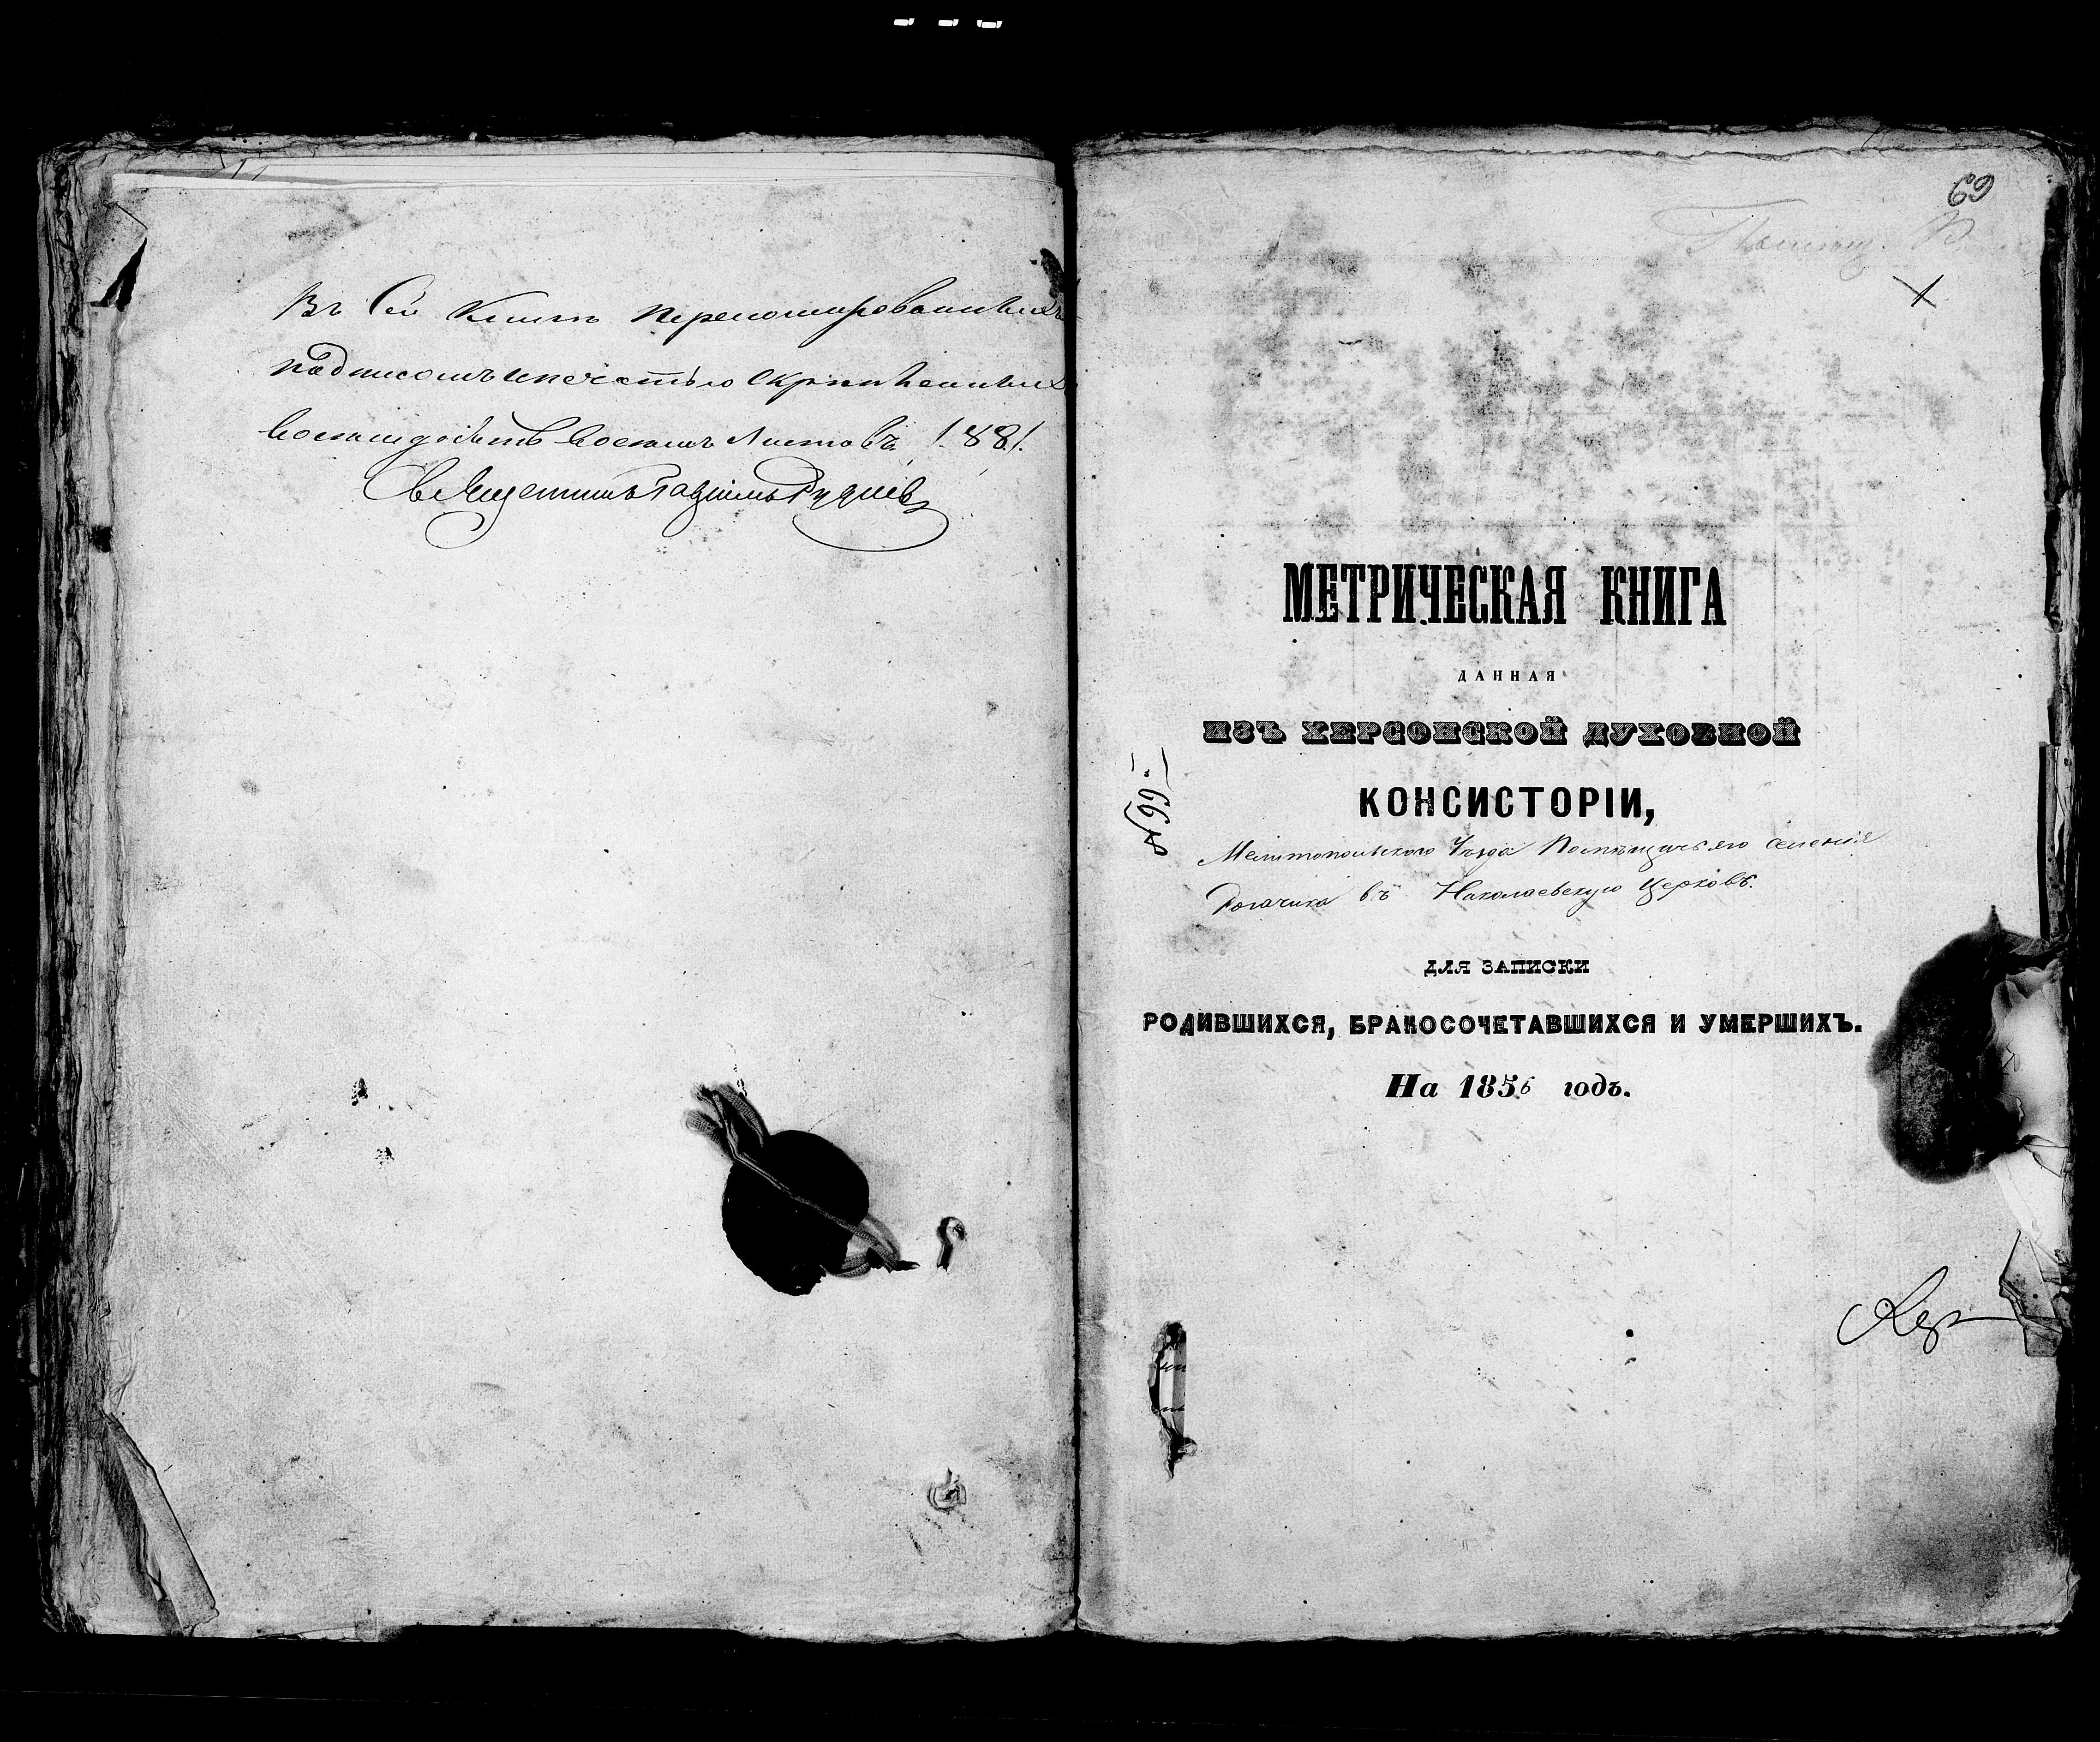 Въ Сей Книгѣ перепомированныхъ
надписомъ и печатью Скрѣпленныхъ
восемдесятъ восемъ Листовъ /.88/.
Священникъ Гавриилъ Рудневъ
69
№ 99.
МЕТРИЧЕСКАЯ КНИГА
ДАННАЯ
ИЗЪ ХЕРСОНСКОЙ ДУХОВНОЙ
КОНСИСТОРІИ,
Мелитопольского Уѣзда Помѣщичьяго селенія
Рогачика въ Николаевскую Церковъ.
ДЛЯ ЗАПИСКИ
РОДИВШИХСЯ, БРАКОСОЧЕТАВШИХСЯ И УМЕРШИХЪ.
На 1856 годъ.